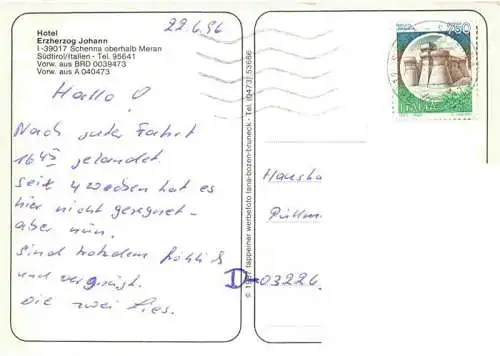 Hotel
Erzherzog Johann
I-39017 Schenna oberhalb Meran
Südtirol/Italien - Tel. 95641
Vorw. aus BRD 0039473
Vorw. aus A 040473
22.6.96
Hallo!
Nach guter Fahrt
16 45 gelandet.
Seit 4 Wochen hat es
hier nicht geregnet -
aber nun.
Sind trotzdem fröhlich
und vergnügt.
Die zwei
tappeiner werbefoto lana-bozen-bruneck · Tel. (0473) 53666
750
ITALIA
Hausha
Püttm
D-03226